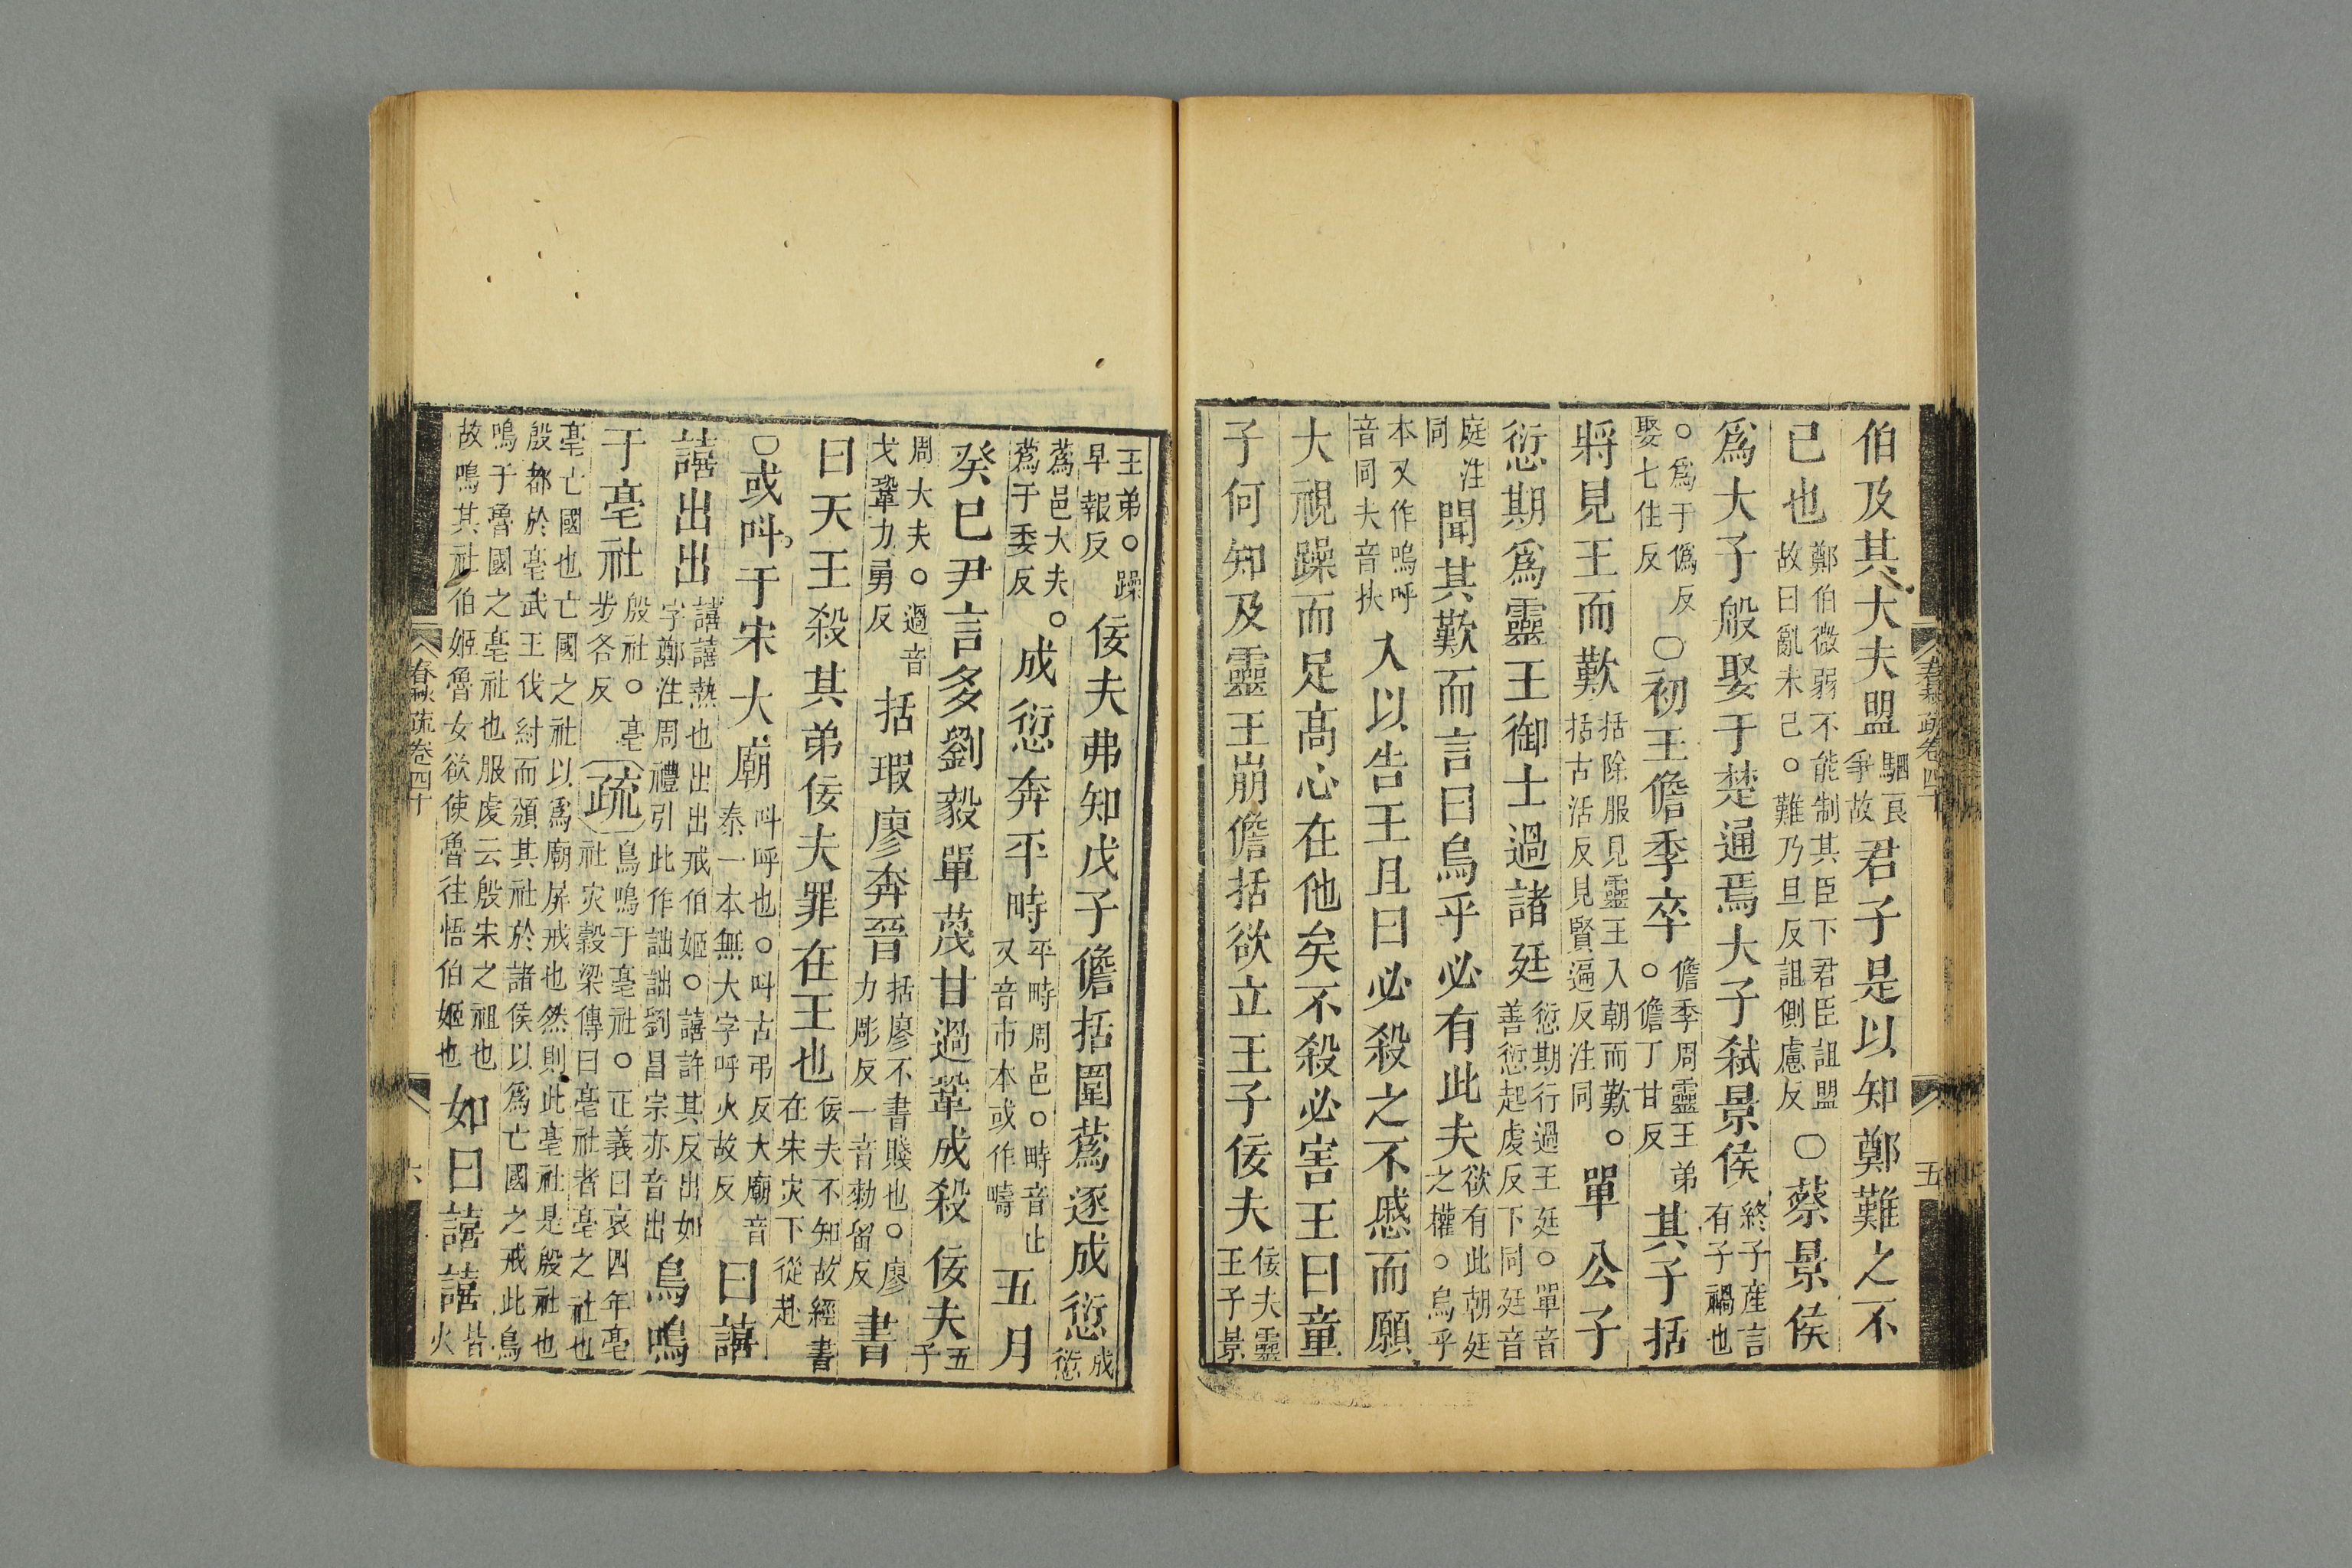 伯及其大夫盟駟良爭故君子是以知鄭難之不
已也鄭伯微弱不能制其臣下君臣詛盟故曰亂未已○難乃旦反詛側慮反○蔡景侯
爲大子般娶于楚通焉大子弒景侯終子産言有子禍也
○爲于僞反娶七住反○初王儋季卒儋季周靈王弟○儋丁甘反其子括
將見王而歎括除服見靈王入朝而歎○括古活反見賢遍反注同單公子
愆期爲靈王御士過諸廷愆期行過王廷○單音善愆起虔反下同廷音
庭注同聞其歎而言曰烏乎必有此夫欲有此朝廷之權○烏乎
本又作嗚呼音同夫音扶入以告王且曰必殺之不慼而願
大視躁而足高心在他矣不殺必害王曰童
子何知及靈王崩儋括欲立王子佞夫佞夫靈王子景
春秋疏卷四十
五
王弟○躁早報反佞夫弗知戊子儋括圍蒍逐成愆成愆
蒍邑大夫○蒍于委反成愆奔平畤平畤周邑○畤音止又音市本或作疇五月
癸巳尹言多劉毅單蔑甘過鞏成殺佞夫五子
周大夫○過音戈鞏力勇反括瑕廖奔晉括廖不書賤也○廖力彫反一音勑留反書
曰天王殺其弟佞夫罪在王也佞夫不知故經書在宋灾下從赴
○或叫于宋大廟叫呼也○叫古弔反大廟音泰一本無大字呼火故反曰譆
譆出出譆譆熱也出出戒伯姬○譆許其反出如字鄭注周禮引此作詘詘劉昌宗亦音出鳥鳴
于亳社殷社○亳步各反疏鳥鳴于亳社○正義曰哀四年亳社灾穀梁傳曰亳社者亳之社也
亳亡國也亡國之社以爲廟屏戒也然則此亳社是殷社也殷都於亳武王伐紂而頒其社於諸侯以爲亡國之戒此鳥
鳴于魯國之亳社也服虔云殷宋之祖也故鳴其社伯姬魯女欲使魯往悟伯姬也如曰譆譆皆火
春秋疏卷四十
六